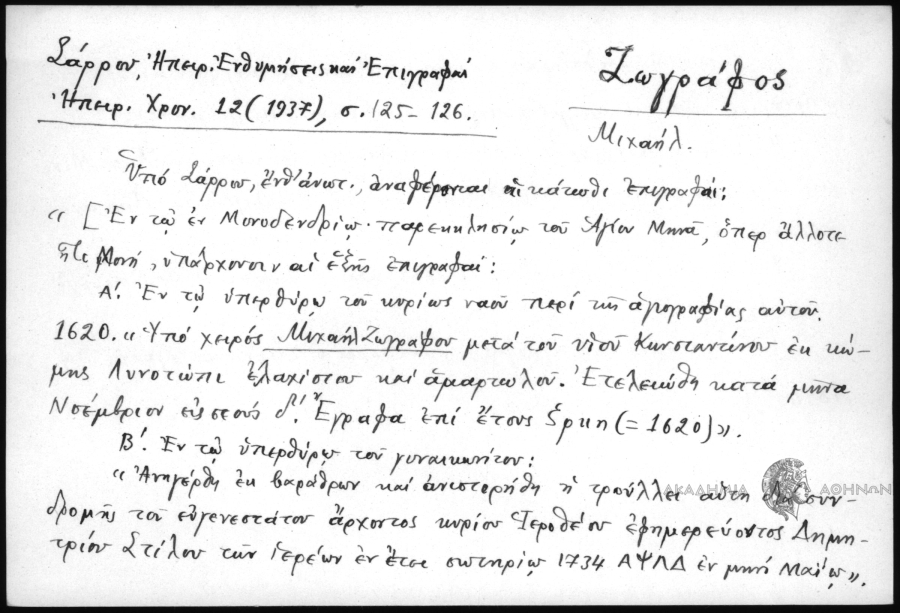 Σάρρου, Ἠπειρ. Ἐνθυμήσεις καί Ἐπιγραφαί
Ἠπειρ. Χρον. 12 (1937), σ. 125-126.
Ζωγράφος
Μιχαήλ.
Ὑπό Σάρρου, ἔνθ' ἀνωτ., ἀναφέρονται αἱ κάτωθι ἐπιγραφαί:
« [Ἐν τῷ ἐν Μονοδενδρίῳ παρεκκλησίῳ τοῦ Ἁγίου Μηνᾶ, ὅπερ ἄλλοτε
ἦτο Μονή, ὑπάρχουσιν αἱ ἑξῆς ἐπιγραφαί:
Α'. Ἐν τῷ ὑπερθύρῳ τοῦ κυρίως ναοῦ περί τῆς ἁγιογραφίας αὐτοῦ.
1620. «Ὑπό χειρός Μιχαήλ Ζωγράφου μετά τοῦ υἱοῦ Κωνσταντίνου ἐκ κώ-
μης Λινοτώπι ἐλαχίστου καί ἁμαρτωλοῦ. Ἐτελειώθη κατά μῆνα
Νοέμβριον εἰς δ'. Ἔγραφα ἐπί ἔτους ζρκη (= 1620)».
Β'. Ἐν τῷ ὑπερθύρῳ τοῦ γυναικωνίτου:
«Ἀνηγέρθη ἐκ βαράθρων καί ἀνιστορήθη ἡ τρούλλει αὕτη διά συν-
δρομῆς τοῦ εὐγενεστάτου ἄρχοντος κυρίου Ἱεροθέου ἐφημερεύοντος Δημη-
τρίου Στίλου τῶν ἱερέων ἐν ἔτει σωτηρίῳ 1734 ΑΨΛΔ ἐν μηνί Μαΐῳ».
ΑΚΑΔΗΜΙΑ ΑΘΗΝΩΝ